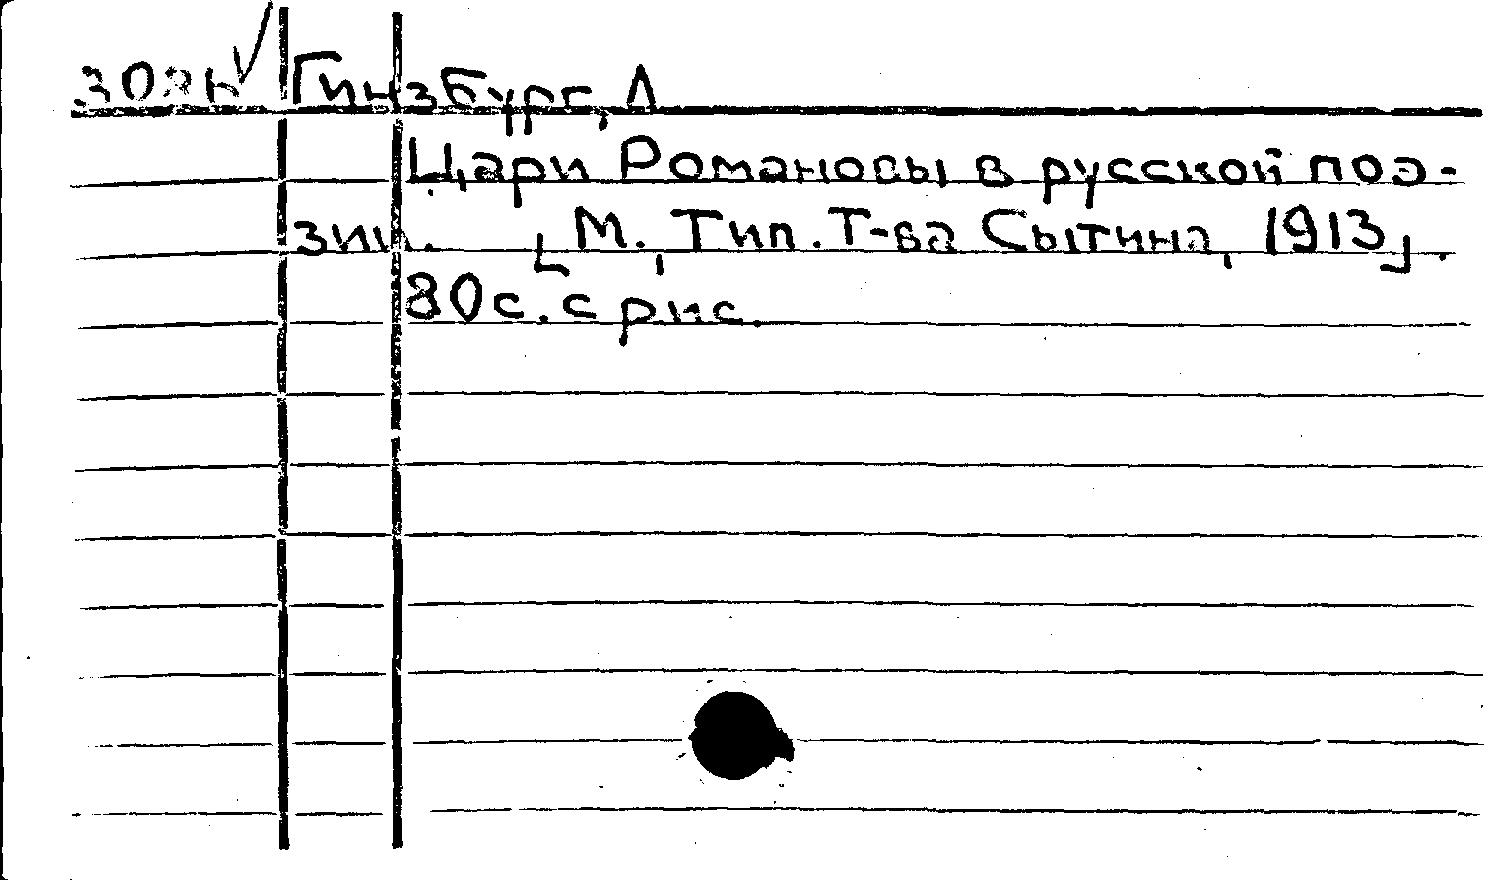 Гинзбург, Л
Цари Романовы в русской поэ-
зии. [М., Тип. Т-ва Сытина, 1913].
80 с. с рис.